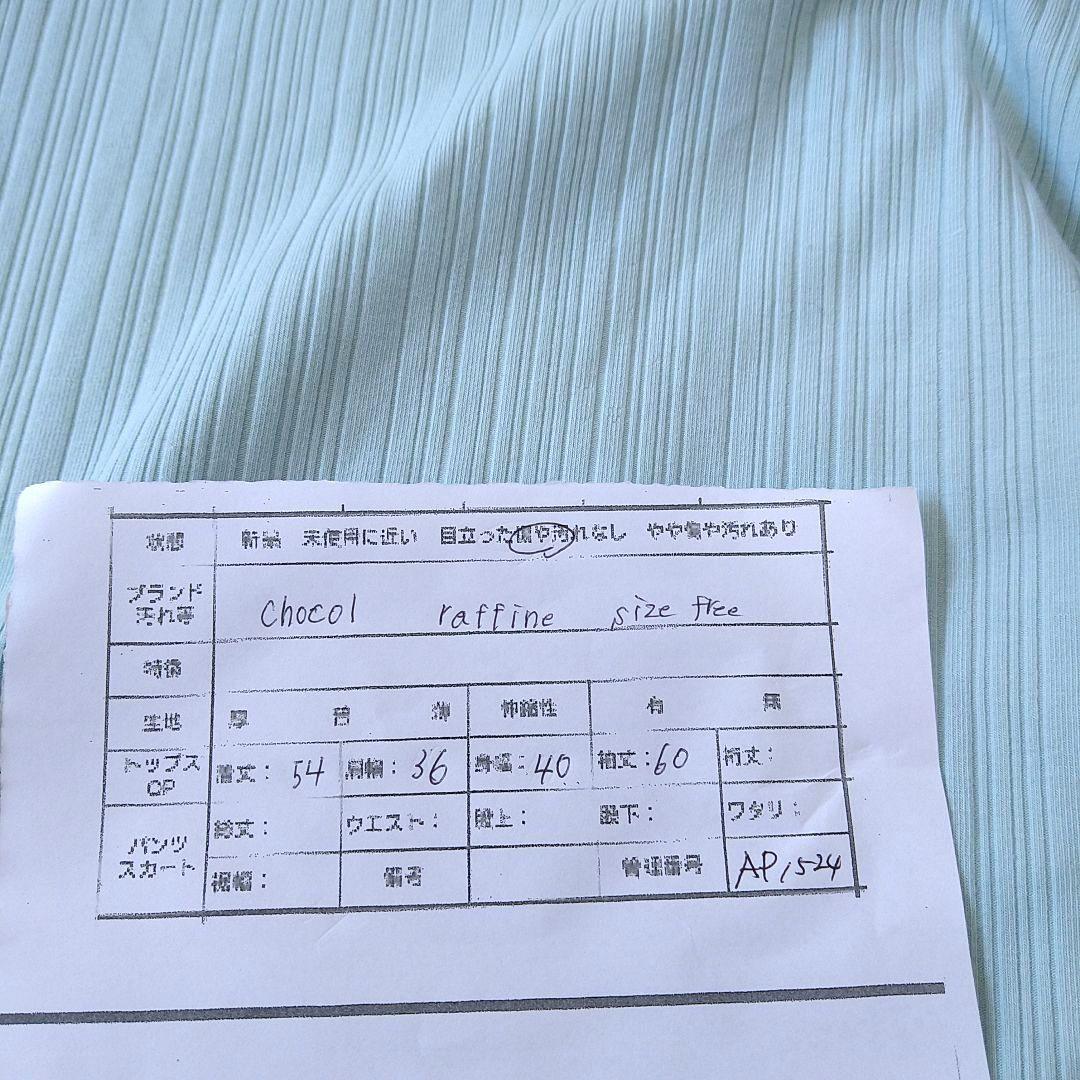 状態 新品 未使用に近い 目立った傷や汚れなし やや傷や汚れあり
ブランド 汚れ等 chocol raffine size free
特徴
生地 厚 普 薄 伸縮性 有 無
トップス OP 着丈: 54 肩幅: 36 身幅: 40 袖丈: 60 裄丈:
パンツ スカート 総丈: ウエスト: 股上: 股下: ワタリ:
裾幅: 備考 管理番号 AP1524